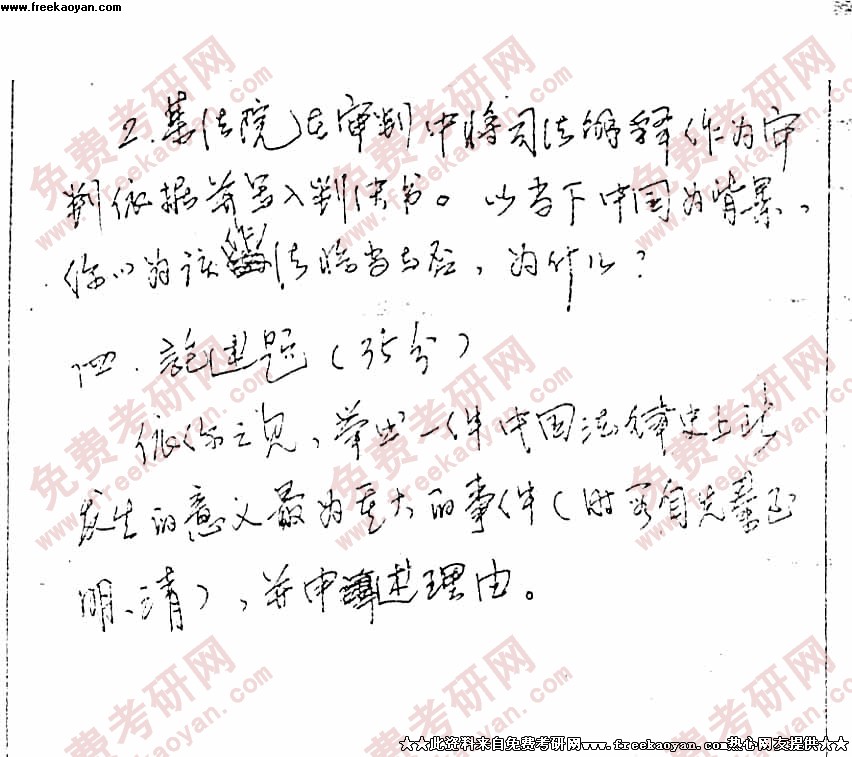 www.freekaoyan.com
2.某法院在审判中将司法解释作为审
判依据并写入判决书。以当下中国为背景,
你以为该法恰当与否,为什么?
四.论述题(35分)
依你之见,举出一件中国法律史上所
发生的意义最为重大的事件(时限自先秦至
明、清),并申述理由。
★★此资料来自免费考研网www.freekaoyan.com热心网友提供★★